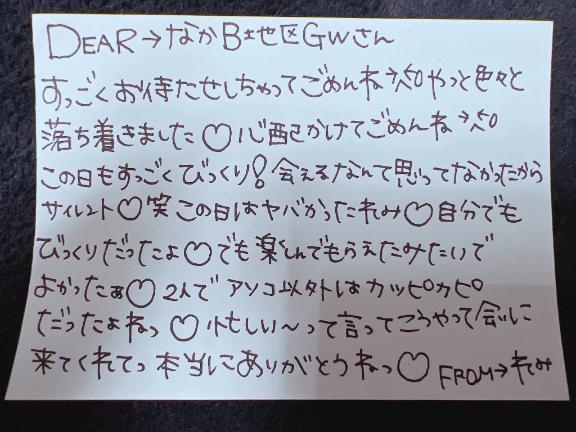 DEAR→なかB地区GWさん
すっごくお待たせしちゃってごめんね やっと色々と
落ち着きました♡心配かけてごめんね
この日もすっごくびっくり!会えるなんて思ってなかったから
サイレント♡笑 この日はヤバかったれみ♡自分でも
びっくりだったよ♡でも楽しんでもらえたみたいで
よかったぁ♡2人でアソコ以外はカッピカピ
だったよねっ♡忙しい〜って言ってこうやって会いに
来てくれてっ本当にありがとうねっ♡ FROM→れみ